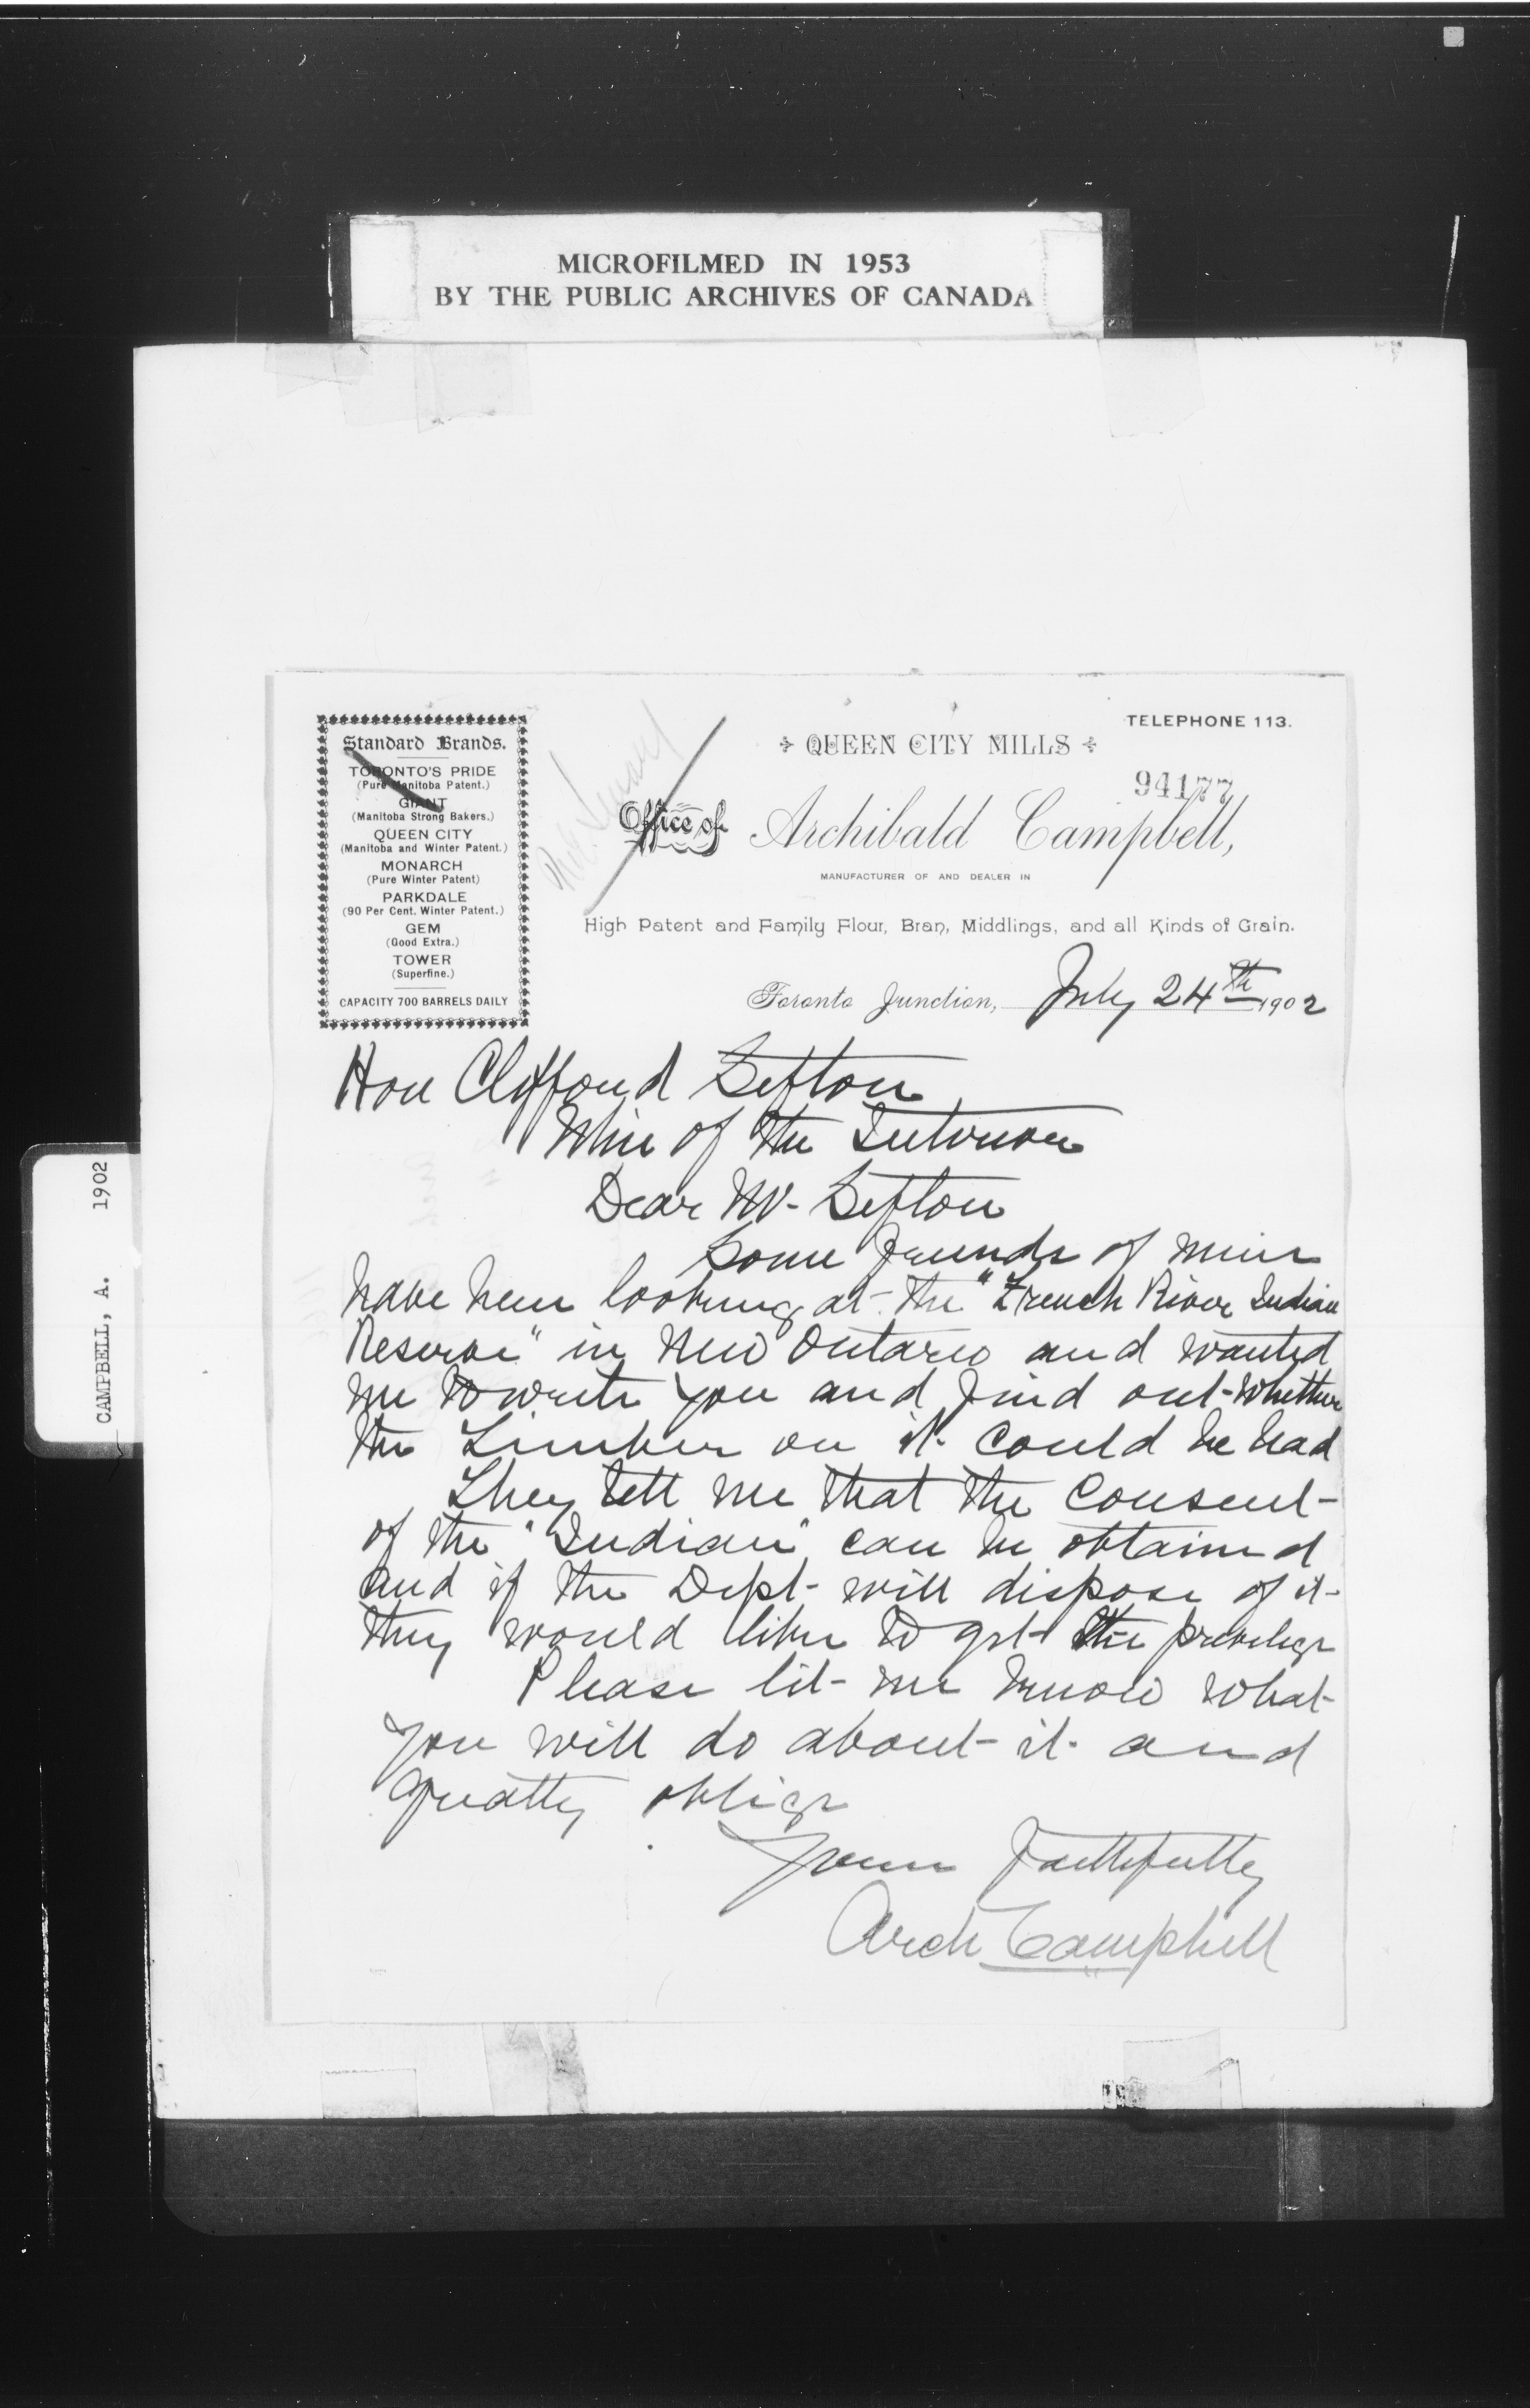 MICROFILMED IN 1953
BY THE PUBLIC ARCHIVES OF CANADA
CAMPBELL, A. 1902
Standard Brands.
TORONTO'S PRIDE
(Pure Manitoba Patent.)
GIANT
(Manitoba Strong Bakers.)
QUEEN CITY
(Manitoba and Winter Patent.)
MONARCH
(Pure Winter Patent)
PARKDALE
(90 Per Cent. Winter Patent.)
GEM
(Good Extra.)
TOWER
(Superfine.)
CAPACITY 700 BARRELS DAILY
TELEPHONE 113.
QUEEN CITY MILLS
94177
Office of Archibald Campbell,
MANUFACTURER OF AND DEALER IN
High Patent and Family Flour, Bran, Middlings, and all Kinds of Grain.
Toronto Junction, July 24th 1902
Hon Clifford Sifton
Min of the Interior
Dear Mr. Sifton
Some friends of mine
have been looking at the "French River Indian
Reserve" in New Ontario and wanted
me to write you and find out whether
the Timber on it could be had
They tell me that the consent
of the "Indian" can be obtained
and if the Dept will dispose of it
they would like to get the privelege
Please let me know what
you will do about it and
greatly oblige
Yours Faithfully
Arch Campbell